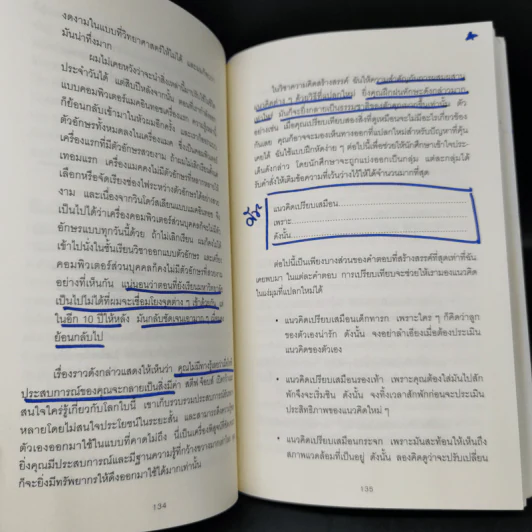 งดงามในแบบที่วิทยาศาสตร์ให้ไม่ได้
มันน่าทึ่งมาก
ผมไม่เคยหวังว่าจะนำสิ่งเหล่านี้มาใช้ได้
ประจำวันได้ แต่สิบปีหลังจากนั้น
แบบคอมพิวเตอร์แมคอินทอชเครื่องแรก
ก็ย้อนกลับเข้ามาในหัวผมอีกครั้ง
ตัวอักษรทั้งหมดลงในเครื่องแมค
เครื่องแรกที่มีตัวอักษรสวยงาม
เทอมแรก เครื่องแมคคงไม่มีตัวอักษรที่หลากหลายให้
เลือกหรือจัดเรียงช่องไฟระหว่างตัวอักษรได้อย่าง
งาม และเนื่องจากวินโดว์สเลียนแบบแมคอินทอช จึง
เป็นไปได้ว่าเครื่องคอมพิวเตอร์ส่วนบุคคลก็จะไม่มีตัว
อักษรแบบทุกวันนี้ด้วย ถ้าไม่เลิกเรียน ผมก็คงไม่ได้
เข้าไปนั่งในชั้นเรียนวิชาออกแบบตัวอักษร และเครื่อง
คอมพิวเตอร์ส่วนบุคคลก็คงไม่มีตัวอักษรที่งดงาม
อย่างที่เห็นกัน แน่นอนว่าตอนที่ยังเรียนมหาวิทยาลัย
เป็นไปไม่ได้ที่ผมจะเชื่อมโยงจุดต่าง ๆ เข้าด้วยกัน แต่
ในอีก 10 ปีให้หลัง มันกลับชัดเจนเอามาก ๆ เมื่อมอง
ย้อนกลับไป
เรื่องราวดังกล่าวแสดงให้เห็นว่า คุณไม่มีทางรู้
ประสบการณ์ของคุณจะกลายเป็นสิ่งมีค่า สตีฟ จ็อบส์
สนใจใคร่รู้เกี่ยวกับโลกใบนี้ เขาเก็บรวบรวมประสบการณ์
หลายโดยไม่สนใจประโยชน์ในระยะสั้น และสามารถดึง
ตัวเองออกมาใช้ในแบบที่คาดไม่ถึง นี่เป็นเครื่องพิสูจน์
ยิ่งคุณมีประสบการณ์และมีฐานความรู้ที่กว้างขวางมาก
ก็จะยิ่งมีทรัพยากรให้ดึงออกมาใช้ได้มากเท่านั้น
134
ในวิชาความคิดสร้างสรรค์ ฉันให้ความสำคัญกับการผสมผสาน
แนวคิดต่าง ๆ ด้วยวิธีที่แปลกใหม่ ยิ่งคุณฝึกฝนทักษะดังกล่าวมาก
เท่าไหร่ มันก็จะยิ่งกลายเป็นธรรมชาติของตัวคุณมากขึ้นเท่านั้น ตัว
อย่างเช่น เมื่อคุณเปรียบเทียบสองสิ่งที่ดูเหมือนจะไม่มีอะไรเกี่ยวข้อง
กันเลย คุณอาจจะมองเห็นทางออกที่แปลกใหม่สำหรับปัญหาที่คุ้น
เคยได้ ฉันใช้แบบฝึกหัดง่าย ๆ ต่อไปนี้เพื่อช่วยให้นักศึกษาเข้าใจประ
เด็นดังกล่าว โดยนักศึกษาจะถูกแบ่งออกเป็นกลุ่ม แต่ละกลุ่มได้
รับคำสั่งให้เติมข้อความที่เว้นว่างไว้ให้ได้จำนวนมากที่สุด
แนวคิดเปรียบเสมือน
เพราะ
ดังนั้น
ต่อไปนี้เป็นเพียงบางส่วนของคำตอบที่สร้างสรรค์ที่สุดเท่าที่ฉัน
เคยพบมา ในแต่ละคำตอบ การเปรียบเทียบจะช่วยให้เรามองแนวคิด
ในแง่มุมที่แปลกใหม่ได้
• แนวคิดเปรียบเสมือนเด็กทารก เพราะใคร ๆ ก็คิดว่าลูก
ของตัวเองน่ารัก ดังนั้น จงอย่าลำเอียงเมื่อต้องประเมิน
แนวคิดของตัวเอง
• แนวคิดเปรียบเสมือนรองเท้า เพราะคุณต้องใส่มันไปสัก
พักจึงจะเริ่มชิน ดังนั้น จงทิ้งเวลาสักพักก่อนจะประเมิน
ประสิทธิภาพของแนวคิดใหม่ ๆ
• แนวคิดเปรียบเสมือนกระจก เพราะมันสะท้อนให้เห็นถึง
สภาพแวดล้อมที่เป็นอยู่ ดังนั้น ลองคิดดูว่าจะปรับเปลี่ยน
135